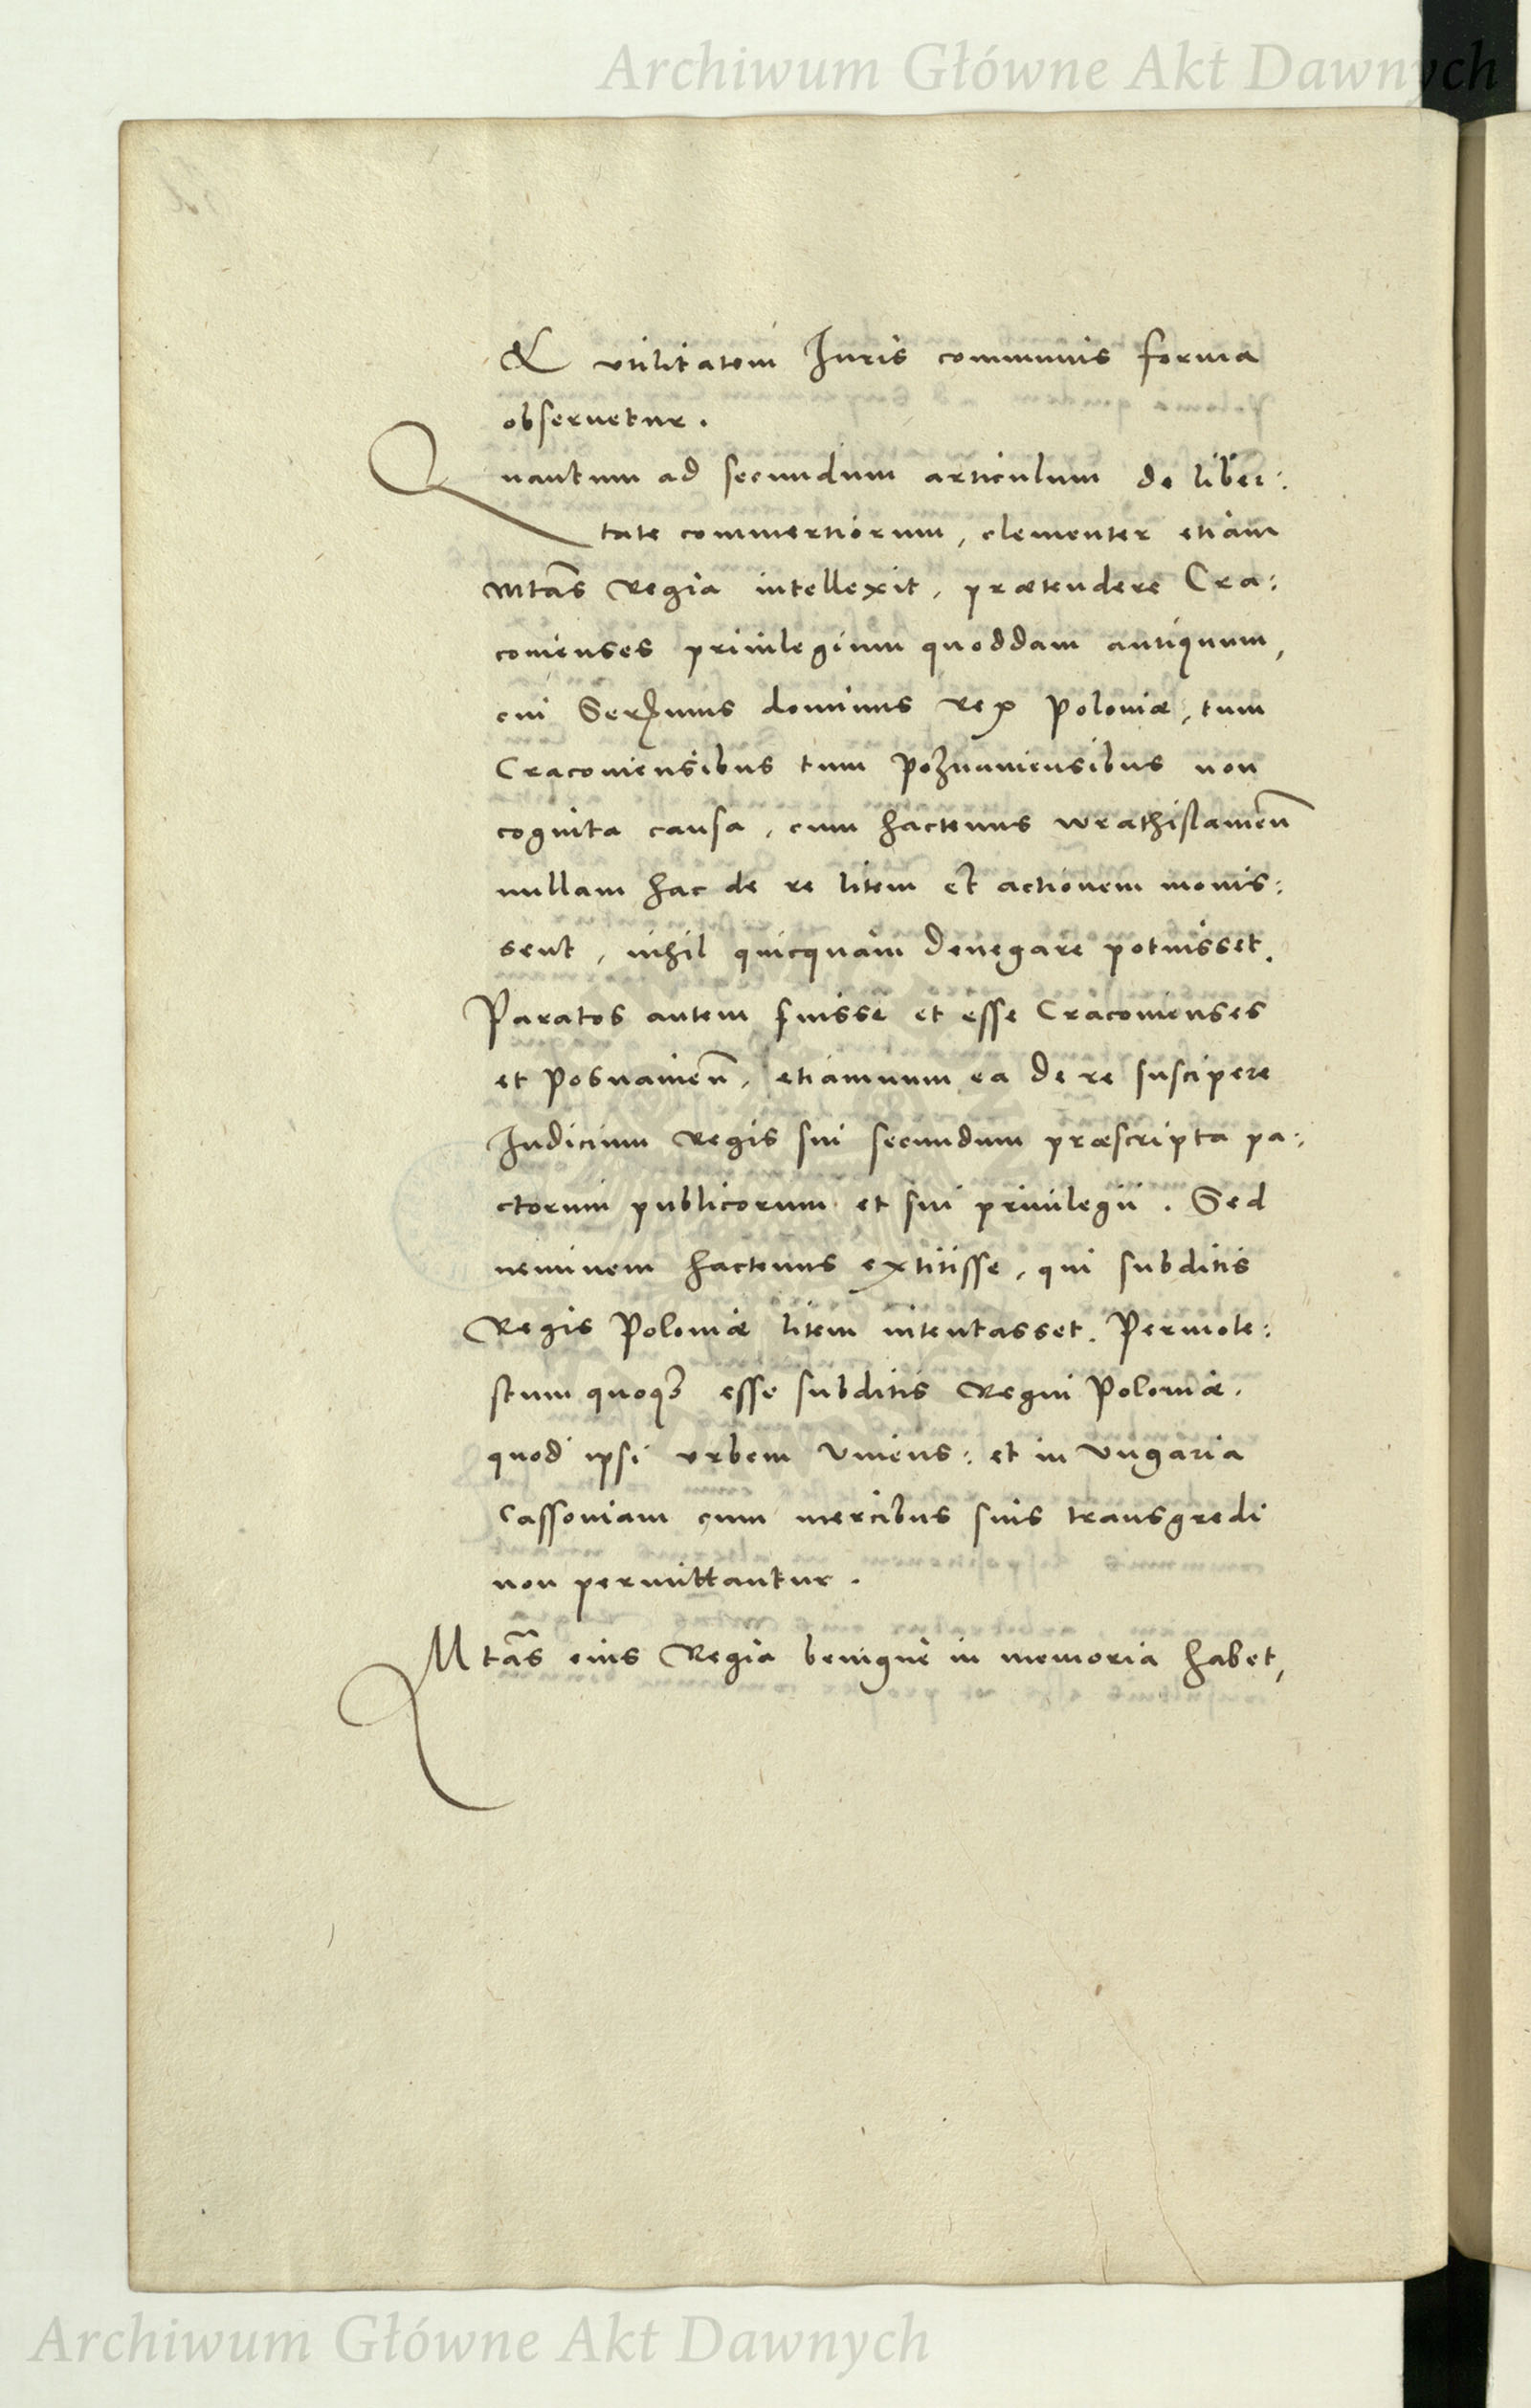 Archiwum Główne Akt Dawnych
& vtilitatem Iuris communis forma
obseruetur.
Quantum ad secundum articulum de liber:
tate commertiorum, clementer etiam
Mtas Regia intellexit, prætendere Cra:
couienses priuilegium quoddam antiquum,
cui Serenmus dominus Rex Poloniæ, tum
Cracouiensibus tum Poznaniensibus non
cognita causa, cum hactenus Wrathislauien
nullam hac de re litem et actionem mouis:
sent, nihil quicquam denegare potuisset.
Paratos autem fuisse et esse Cracouienses
et Posnanien, etiamnum ea de re suscipere
Iudicium Regis sui secundum præscripta pa:
ctorum publicorum et sui priuilegii. Sed
neminem hactenus extitisse, qui subditis
Regis Poloniæ litem intentasset. Permole:
stum quoq3 esse subditis Regni Poloniæ.
quod ipsi vrbem Viuens: et in Vngaria
Cassouiam cum mercibus suis transgredi
non permittantur.
Mtas eius Regia benigne in memoria habet,
Archiwum Główne Akt Dawnych